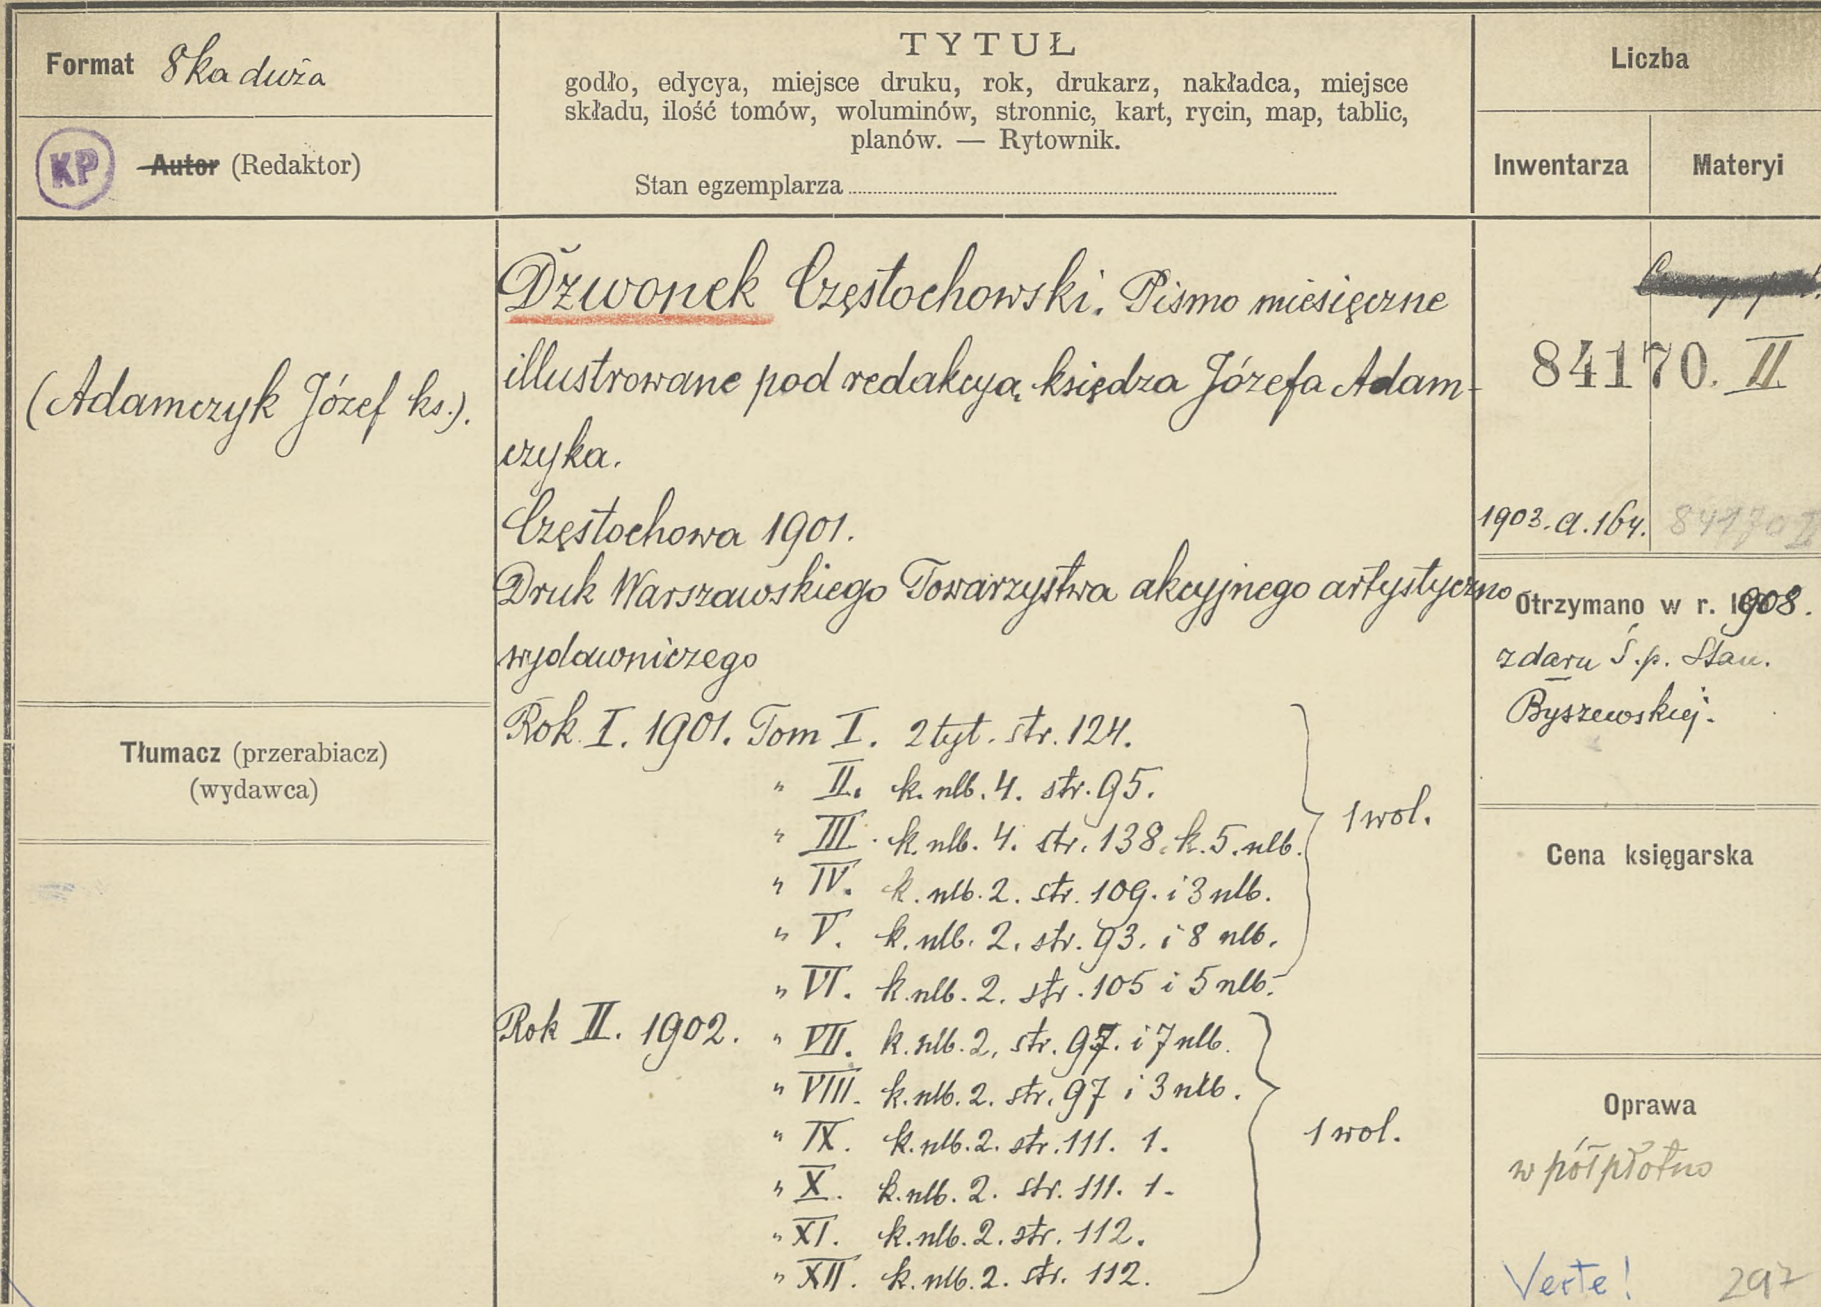 Format 8ka duża
KP
Autor (Redaktor)
TYTUŁ
godło, edycya, miejsce druku, rok, drukarz, nakładca, miejsce
składu, ilość tomów, woluminów, stronnic, kart, rycin, map, tablic,
planów. — Rytownik.
Stan egzemplarza
Liczba
Inwentarza
Materyi
(Adamczyk Józef ks.).
Dzwonek Częstochowski. Pismo miesięczne
illustrowane pod redakcyą księdza Józefa Adam-
czyka.
Częstochowa 1901.
Druk Warszawskiego Towarzystwa akcyjnego artystyczno
wydawniczego
Rok I. 1901. Tom I. 2 tyt. str. 124.
" II. k. nlb. 4. str. 95.
" III. k. nlb. 4. str. 138. k. 5. nlb.
" IV. k. nlb. 2. str. 109. i 3 nlb.
" V. k. nlb. 2. str. 93. i 8 nlb.
" VI. k. nlb. 2. str. 105 i 5 nlb.
1 wol.
Rok II. 1902. " VII. k. nlb. 2. str. 97. i 7 nlb.
" VIII. k. nlb. 2. str. 97 i 3 nlb.
" IX. k. nlb. 2. str. 111. 1.
" X. k. nlb. 2. str. 111. 1.
" XI. k. nlb. 2. str. 112.
" XII. k. nlb. 2. str. 112.
1 wol.
84170. II
1903. a. 164.
84170 II
Otrzymano w r. 1908.
z daru Ś. p. Stan.
Byszewskiej.
Cena księgarska
Oprawa
w półpłótno
Verte!
297
Tłumacz (przerabiacz)
(wydawca)